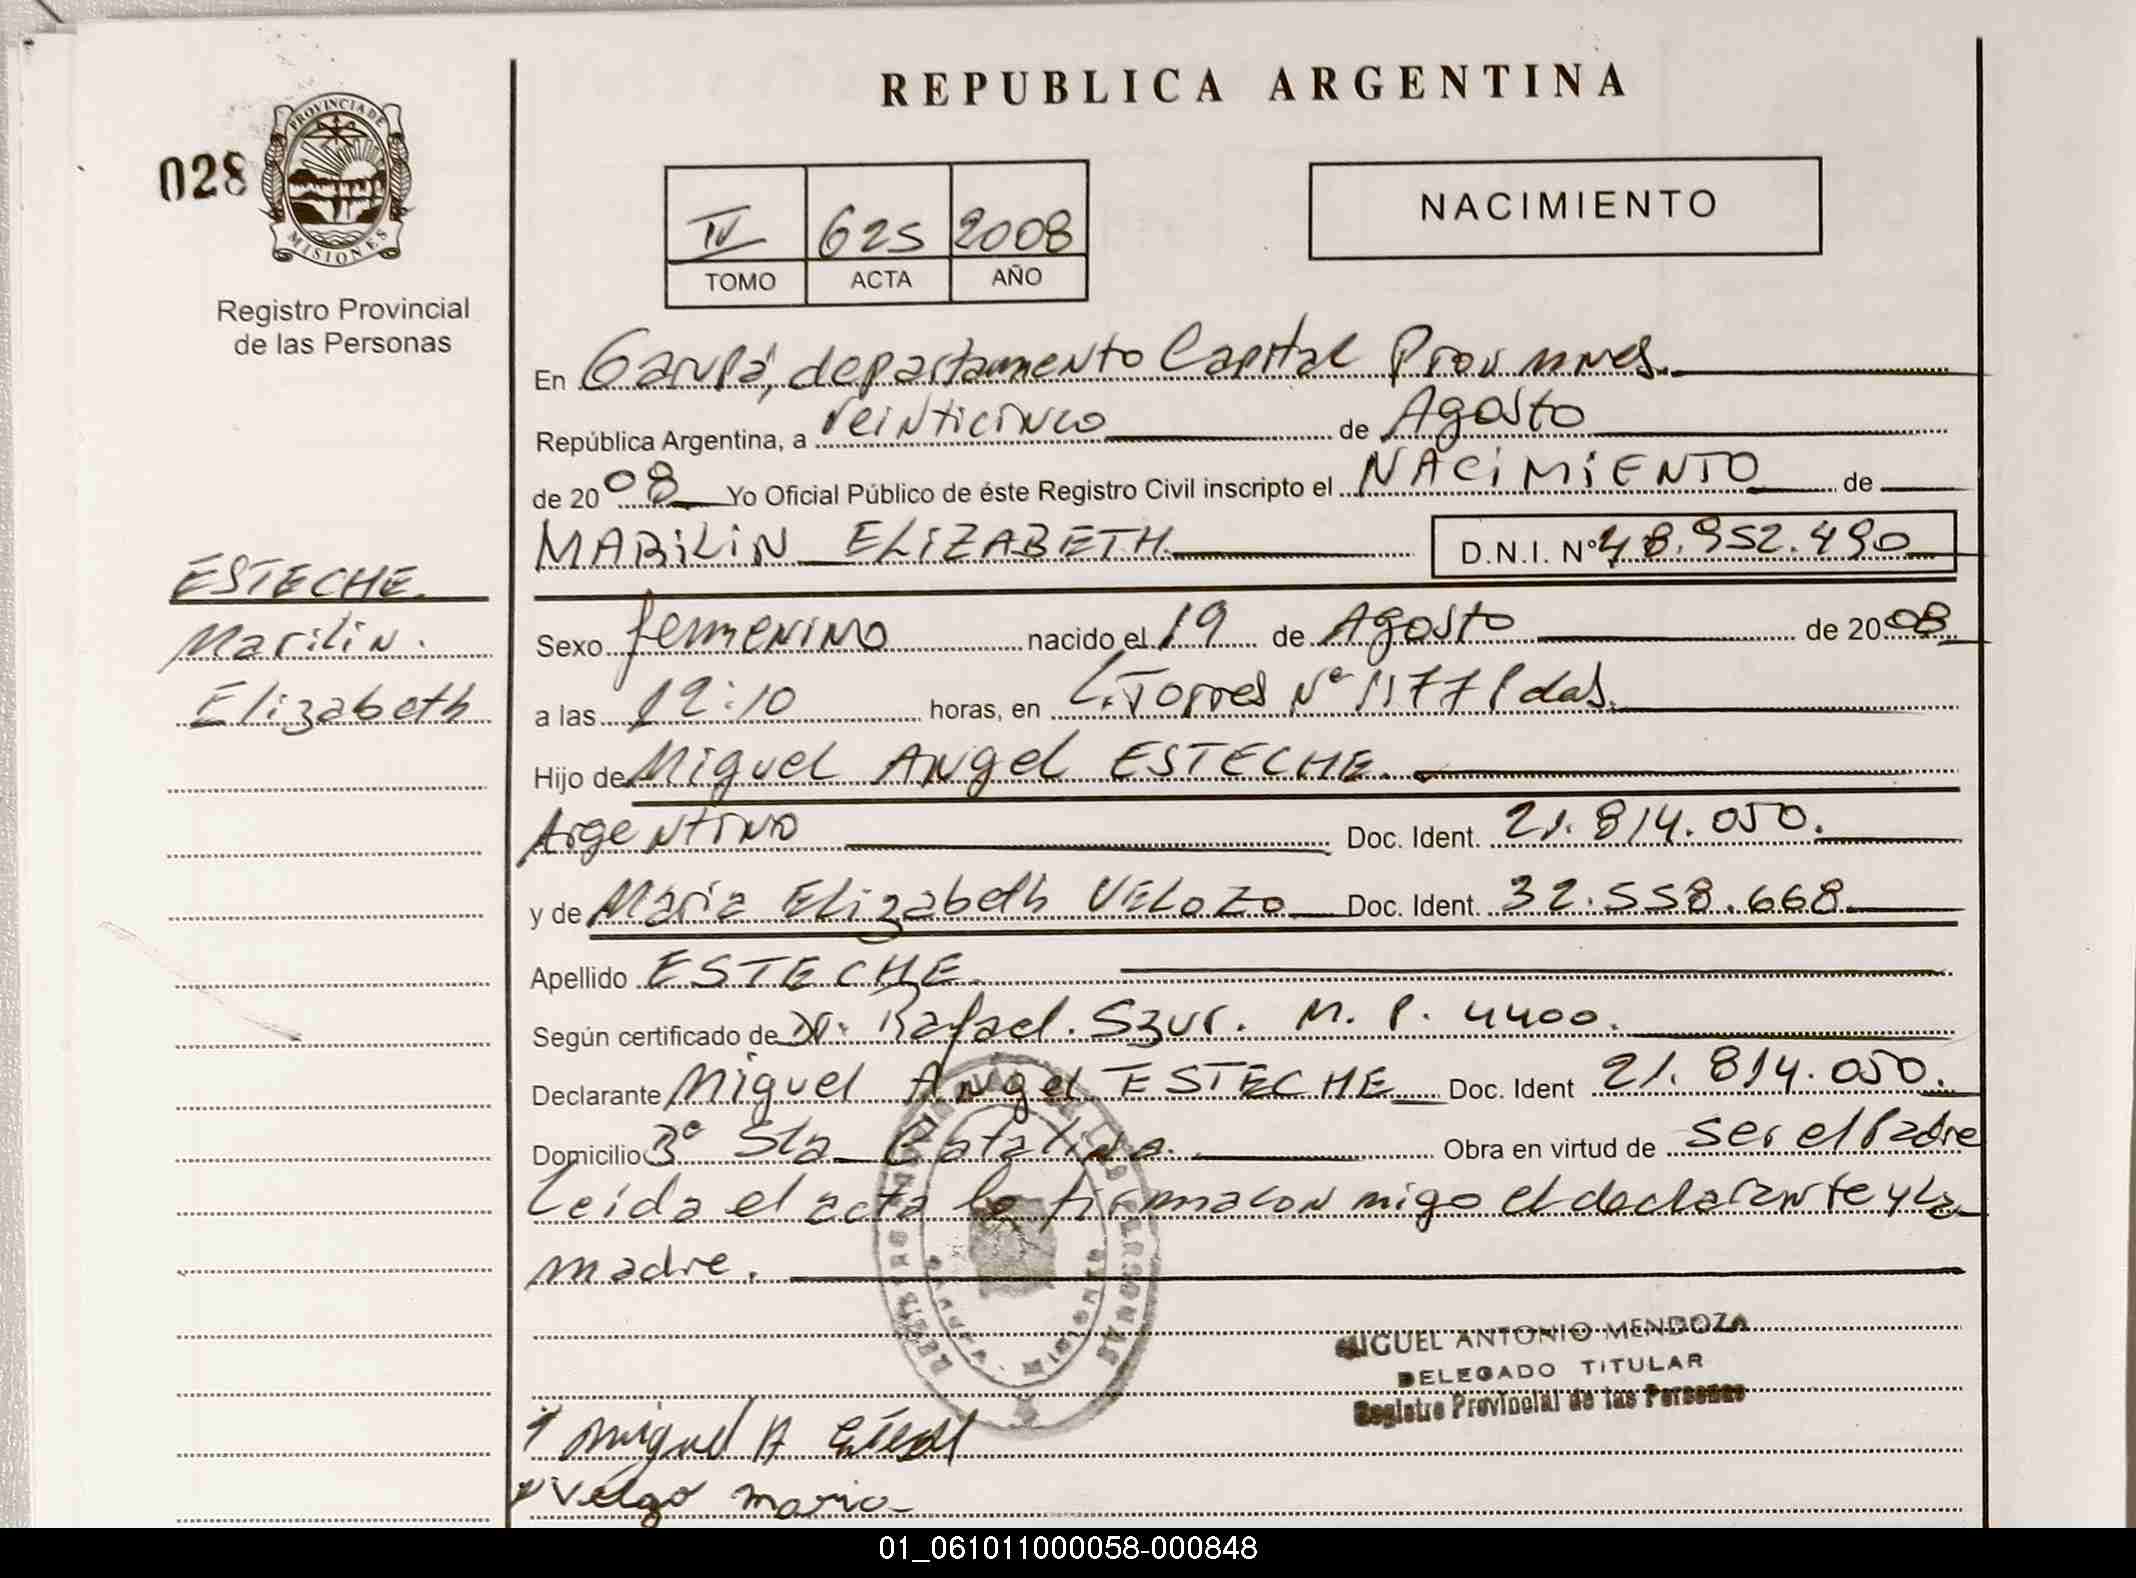 REPUBLICA ARGENTINA
028
PROVINCIA DE
MISIONES
Registro Provincial
de las Personas
NACIMIENTO
IV 625 2008
TOMO ACTA AÑO
En Garupá, departamento Capital Prov mnes.
República Argentina, a veinticinco de Agosto
de 2008 Yo Oficial Público de éste Registro Civil inscripto el NACIMIENTO de
MARILIN ELIZABETH D.N.I. Nº 48.952.490
ESTECHE.
Marilin.
Elizabeth
Sexo femenino nacido el 19 de Agosto de 2008
a las 12:10 horas, en L. Torres Nº 1177 Pdas.
Hijo de Miguel Angel ESTECHE.
Argentino Doc. Ident. 21.814.050.
y de Maria Elizabeth VELOZO Doc. Ident. 32.558.668
Apellido ESTECHE.
Según certificado de Dr. Rafael. Szur. M. P. 4400.
Declarante Miguel Angel ESTECHE Doc. Ident 21.814.050.
Domicilio Bº Sta Catalina. Obra en virtud de ser el Padre
Leida el acta la firma con migo el declarante y la
madre.
MIGUEL ANTONIO MENDOZA
DELEGADO TITULAR
Registro Provincial de las Personas
Miguel A
Velozo maria
01_061011000058-000848